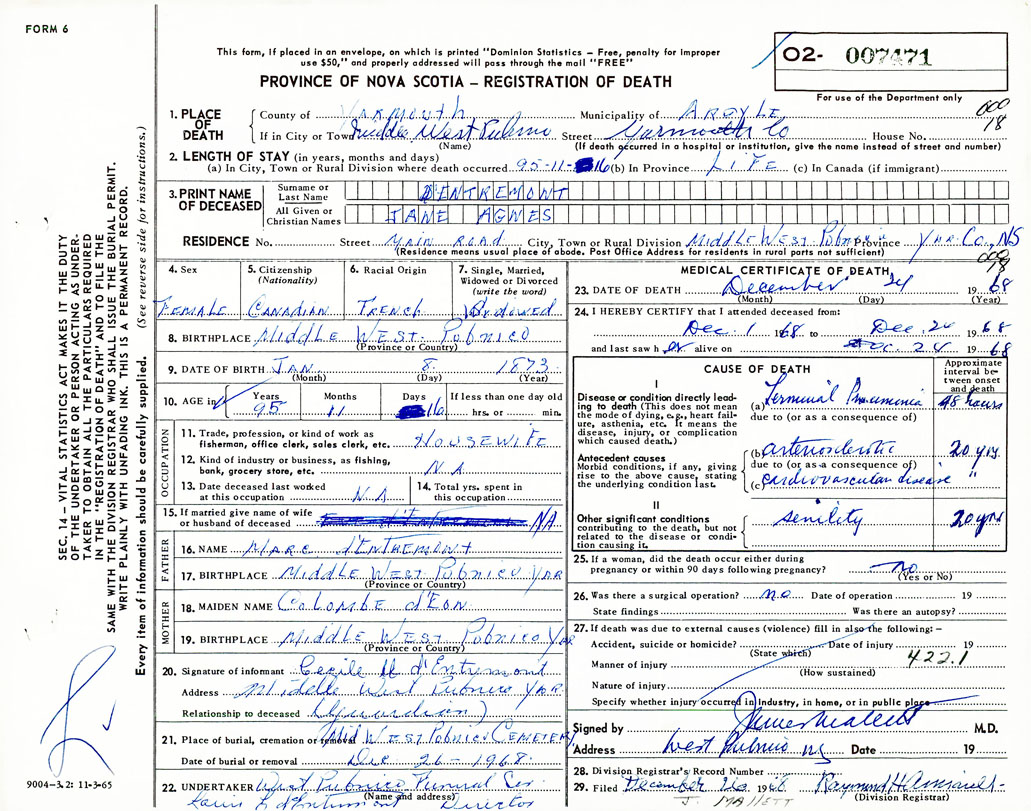 FORM 6
This form, if placed in an envelope, on which is printed "Dominion Statistics – Free, penalty for improper
use $50," and properly addressed will pass through the mail "FREE"
PROVINCE OF NOVA SCOTIA – REGISTRATION OF DEATH
02- 007471
For use of the Department only
1. PLACE OF DEATH
County of YARMOUTH Municipality of ARGYLE
If in City or Town Middle West Pubnico Street Yarmouth Co House No.
(Name) (If death occurred in a hospital or institution, give the name instead of street and number)
2. LENGTH OF STAY (in years, months and days)
(a) In City, Town or Rural Division where death occurred 95-11-16 (b) In Province LIFE (c) In Canada (if immigrant)
3. PRINT NAME OF DECEASED
Surname or Last Name D'ENTREMONT
All Given or Christian Names JANE AGNES
RESIDENCE No. Street MAIN ROAD City, Town or Rural Division MIDDLE WEST PUBNICO Province YAR. Co., NS
(Residence means usual place of abode. Post Office Address for residents in rural parts not sufficient)
4. Sex
FEMALE
5. Citizenship
(Nationality)
CANADIAN
6. Racial Origin
FRENCH
7. Single, Married, Widowed or Divorced
(write the word)
Widowed
8. BIRTHPLACE MIDDLE WEST PUBNICO
(Province or Country)
9. DATE OF BIRTH JAN 8 1873
(Month) (Day) (Year)
10. AGE in Years Months Days If less than one day
95 11 16 hrs. or min.
OCCUPATION
11. Trade, profession, or kind of work as fisherman, office clerk, sales clerk, etc. HOUSEWIFE
12. Kind of industry or business, as fishing, bank, grocery store, etc. N A
13. Date deceased last worked at this occupation N A
14. Total yrs. spent in this occupation
15. If married give name of wife or husband of deceased NA
FATHER
16. NAME MARC d'ENTREMONT
17. BIRTHPLACE MIDDLE WEST PUBNICO YAR
(Province or Country)
MOTHER
18. MAIDEN NAME COLOMBE d'EON
19. BIRTHPLACE MIDDLE WEST PUBNICO YAR
(Province or Country)
20. Signature of informant Cecile d'Entremont
Address Middle West Pubnico YAR.
Relationship to deceased (Guardian)
21. Place of burial, cremation or removal MID WEST PUBNICO CEMETERY
Date of burial or removal Dec 26 - 1968.
22. UNDERTAKER West Pubnico Funeral Ser.
(Name and address)
d'Entremont Director
MEDICAL CERTIFICATE OF DEATH
23. DATE OF DEATH December 24 1968
(Month) (Day) (Year)
24. I HEREBY CERTIFY that I attended deceased from:
Dec. 1 1968 to Dec. 24 1968
and last saw her alive on Dec. 24 1968
CAUSE OF DEATH
Approximate interval between onset and death
I
Disease or condition directly leading to death (This does not mean the mode of dying, e.g., heart failure, asthenia, etc. It means the disease, injury, or complication which caused death.)
(a) Terminal Pneumonia 48 hours
due to (or as a consequence of)
Antecedent causes
Morbid conditions, if any, giving rise to the above cause, stating the underlying condition last.
(b) arteriosclerotic 20 yrs.
due to (or as a consequence of)
(c) cardiovascular disease "
II
Other significant conditions contributing to the death, but not related to the disease or condition causing it.
senility 20 yrs
25. If a woman, did the death occur either during pregnancy or within 90 days following pregnancy? no
(Yes or No)
26. Was there a surgical operation? no Date of operation 19
State findings Was there an autopsy?
27. If death was due to external causes (violence) fill in also the following: –
Accident, suicide or homicide? Date of injury 19
(State which) 422.1
Manner of injury
(How sustained)
Nature of injury
Specify whether injury occurred in Industry, in home, or in public place
Signed by M.D.
Address West Pubnico NS Date 19
28. Division Registrar's Record Number
29. Filed December 26 1968
(Division Registrar)
SEC. 14 – VITAL STATISTICS ACT MAKES IT THE DUTY
OF THE UNDERTAKER OR PERSON ACTING AS UNDERTAKER TO OBTAIN ALL THE PARTICULARS REQUIRED
IN THE "REGISTRATION OF DEATH" AND TO FILE THE
SAME WITH THE DIVISION REGISTRAR WHO SHALL ISSUE THE BURIAL PERMIT.
WRITE PLAINLY WITH UNFADING INK. THIS IS A PERMANENT RECORD.
Every item of information should be carefully supplied. (See reverse side for instructions.)
9004-3.2: 11-3-65